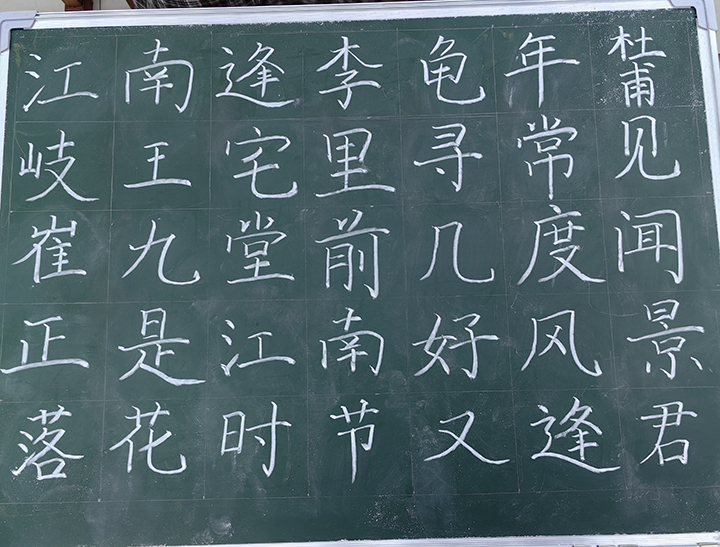 江南逢李龟年杜甫
岐王宅里寻常见
崔九堂前几度闻
正是江南好风景
落花时节又逢君